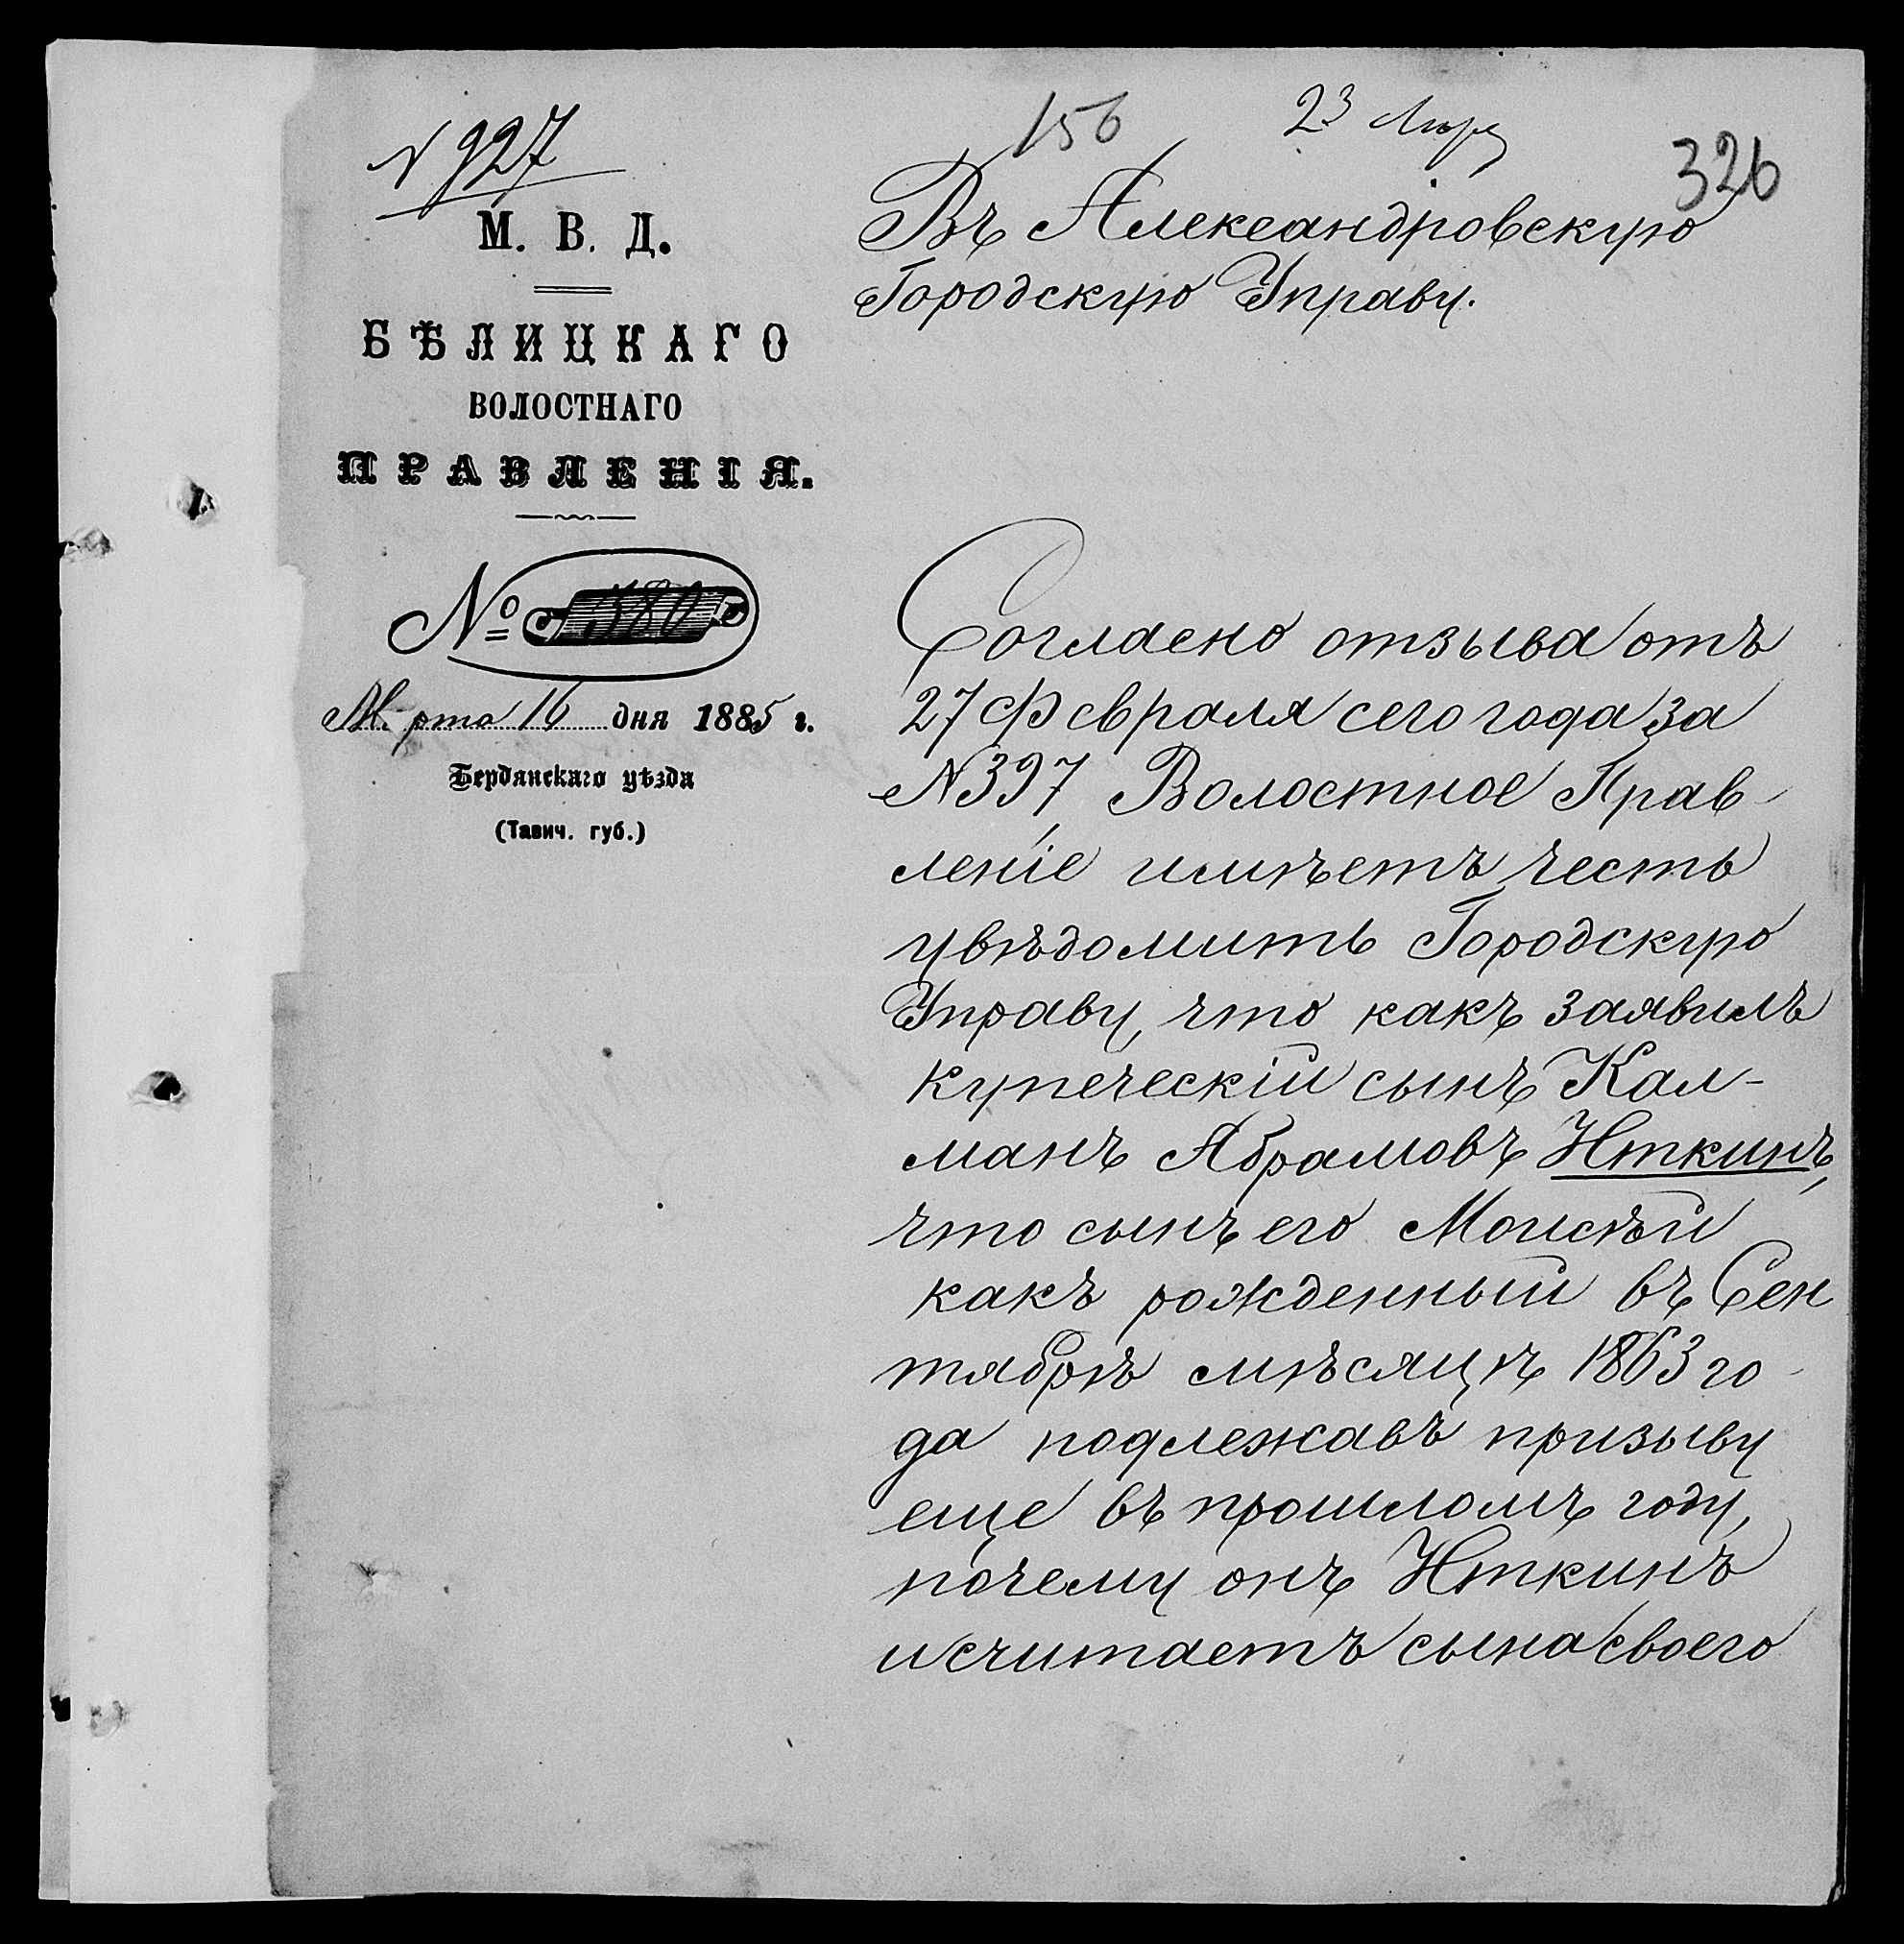 N 927
156
23 Мар
326
М. В. Д.
БѢЛИЦКАГО
ВОЛОСТНАГО
ПРАВЛЕНІЯ.
№ 380
Марта 16 дня 1885 г.
Бердянскаго уѣзда
(Тавич. губ.)
Въ Александровскую
Городскую Управу.
Согласно отзыва отъ
27 Февраля сего года за
N 397, Волостное Прав-
леніе имѣетъ честь
увѣдомить Городскую
Управу, что какъ заявилъ
купеческій сынъ Кал-
манъ Абрамовъ Иткинъ,
что сынъ его Моисѣй
какъ рожденный въ Сен
тябрѣ мѣсяцѣ 1863 го-
да подлежавъ призыву
еще въ прошломъ году,
почему онъ Иткинъ
и считаетъ сына своего